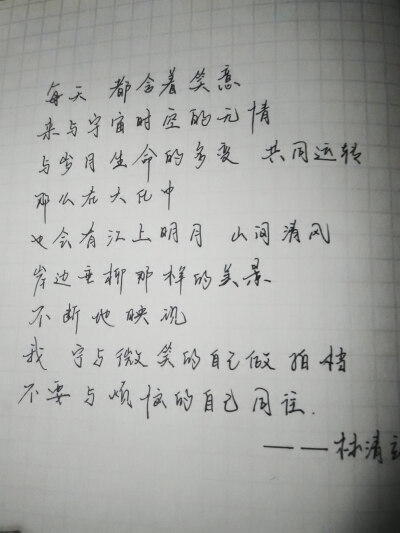 每天 都含着笑意
来与宇宙时空的无情
与岁月生命的多变 共同运转
那么在大化中
也会有江上明月 山间清风
岸边垂柳那样的美景
不断地映现
我 宁与微笑的自己做拍档
不要与烦恼的自己同住.
——林清玄